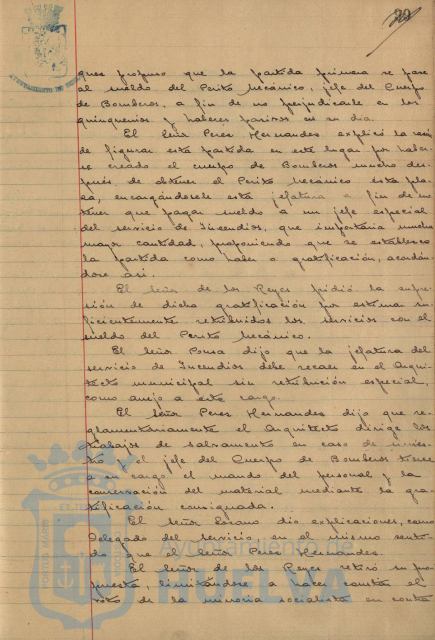 29
ques propuso que la partida primera se pase
al sueldo del Perito Mecánico, jefe del Cuerpo
de Bomberos, a fin de no perjudicarle en los
quinquenios y haberes pasivos en su dia.
El Señor Peres Hernandes explicó la razón
de figurar esta partida en este lugar por haber-
se creado el cuerpo de Bomberos mucho des-
pués de obtener el Perito Mecánico esta pla-
za, encargándosele esta jefatura a fin de no
tener que pagar sueldo a un jefe especial
del servicio de Incendios, que importaria mucha
mayor cantidad, proponiendo que se establezca
la partida como haber o gratificación, acordán-
dose asi.
El Señor de los Reyes pidió la supre-
sión de dicha gratificación por estimar su-
ficientemente retribuidos los servicios con el
sueldo del Perito Mecánico.
El Señor Ponsa dijo que la jefatura del
servicio de Incendios debe recaer en el Arqui-
tecto municipal sin retribución especial,
como anejo a este cargo.
El Señor Peres Hernandes dijo que re-
glamentariamente el Arquitecto dirige los
trabajos de salvamento en caso de sinies-
tro y el jefe del Cuerpo de Bomberos tiene
a su cargo el mando del personal y la
conservación del material mediante la gra-
tificación consignada.
El Señor Lozano dio explicaciones, como
Delegado del Servicio en el mismo senti-
do que el Señor Peres Hernandes.
El Señor de los Reyes retiró su pro-
puesta, limitándose a hacer constar el
voto de la minoria socialista en contra
Ayuntamiento de
HUELVA